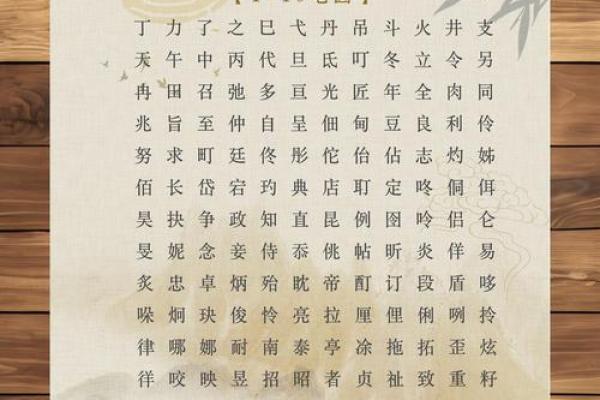 丁 力 了 之 巳 弋 丹 吊 斗 火 井 支
天 午 中 丙 代 旦 氐 叮 冬 立 令 另
冉 田 召 弛 多 亘 光 匠 年 全 肉 同
兆 旨 至 仲 自 呈 佃 甸 豆 良 利 伶
努 求 町 廷 佟 彤 佗 佁 佔 志 灼 姊
佰 长 岱 宕 玓 典 店 耵 定 咚 侗 佴
昊 抉 争 政 知 直 昆 例 图 呤 侣 仑
旻 妮 念 妾 侍 忝 佻 帖 昕 炎 佯 易
炙 忠 卓 炳 殆 眈 帝 酊 订 段 盾 哆
哚 炯 玦 俊 怜 亮 拉 厘 俚 俐 咧 拎
律 哪 娜 耐 南 泰 亭 凃 拖 拓 歪 炫
徉 咬 映 昱 招 昭 者 贞 祉 致 重 籽